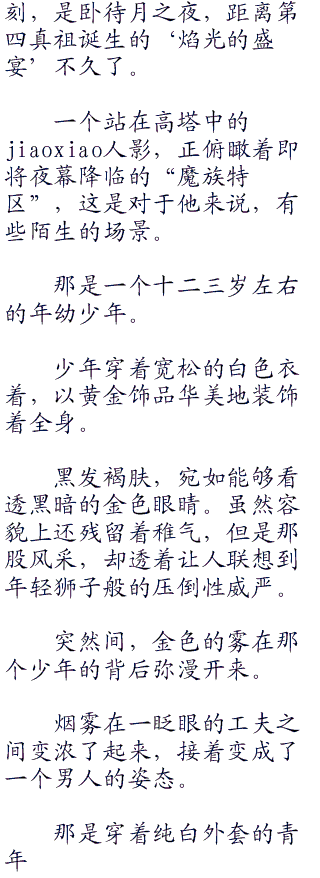 刻，是卧待月之夜，距离第
四真祖诞生的‘焰光的盛
宴’不久了。
一个站在高塔中的
jiaoxiao人影，正俯瞰着即
将夜幕降临的“魔族特
区”，这是对于他来说，有
些陌生的场景。
那是一个十二三岁左右
的年幼少年。
少年穿着宽松的白色衣
着，以黄金饰品华美地装饰
着全身。
黑发褐肤，宛如能够看
透黑暗的金色眼睛。虽然容
貌上还残留着稚气，但是那
股风采，却透着让人联想到
年轻狮子般的压倒性威严。
突然间，金色的雾在那
个少年的背后弥漫开来。
烟雾在一眨眼的工夫之
间变浓了起来，接着变成了
一个男人的姿态。
那是穿着纯白外套的青
年